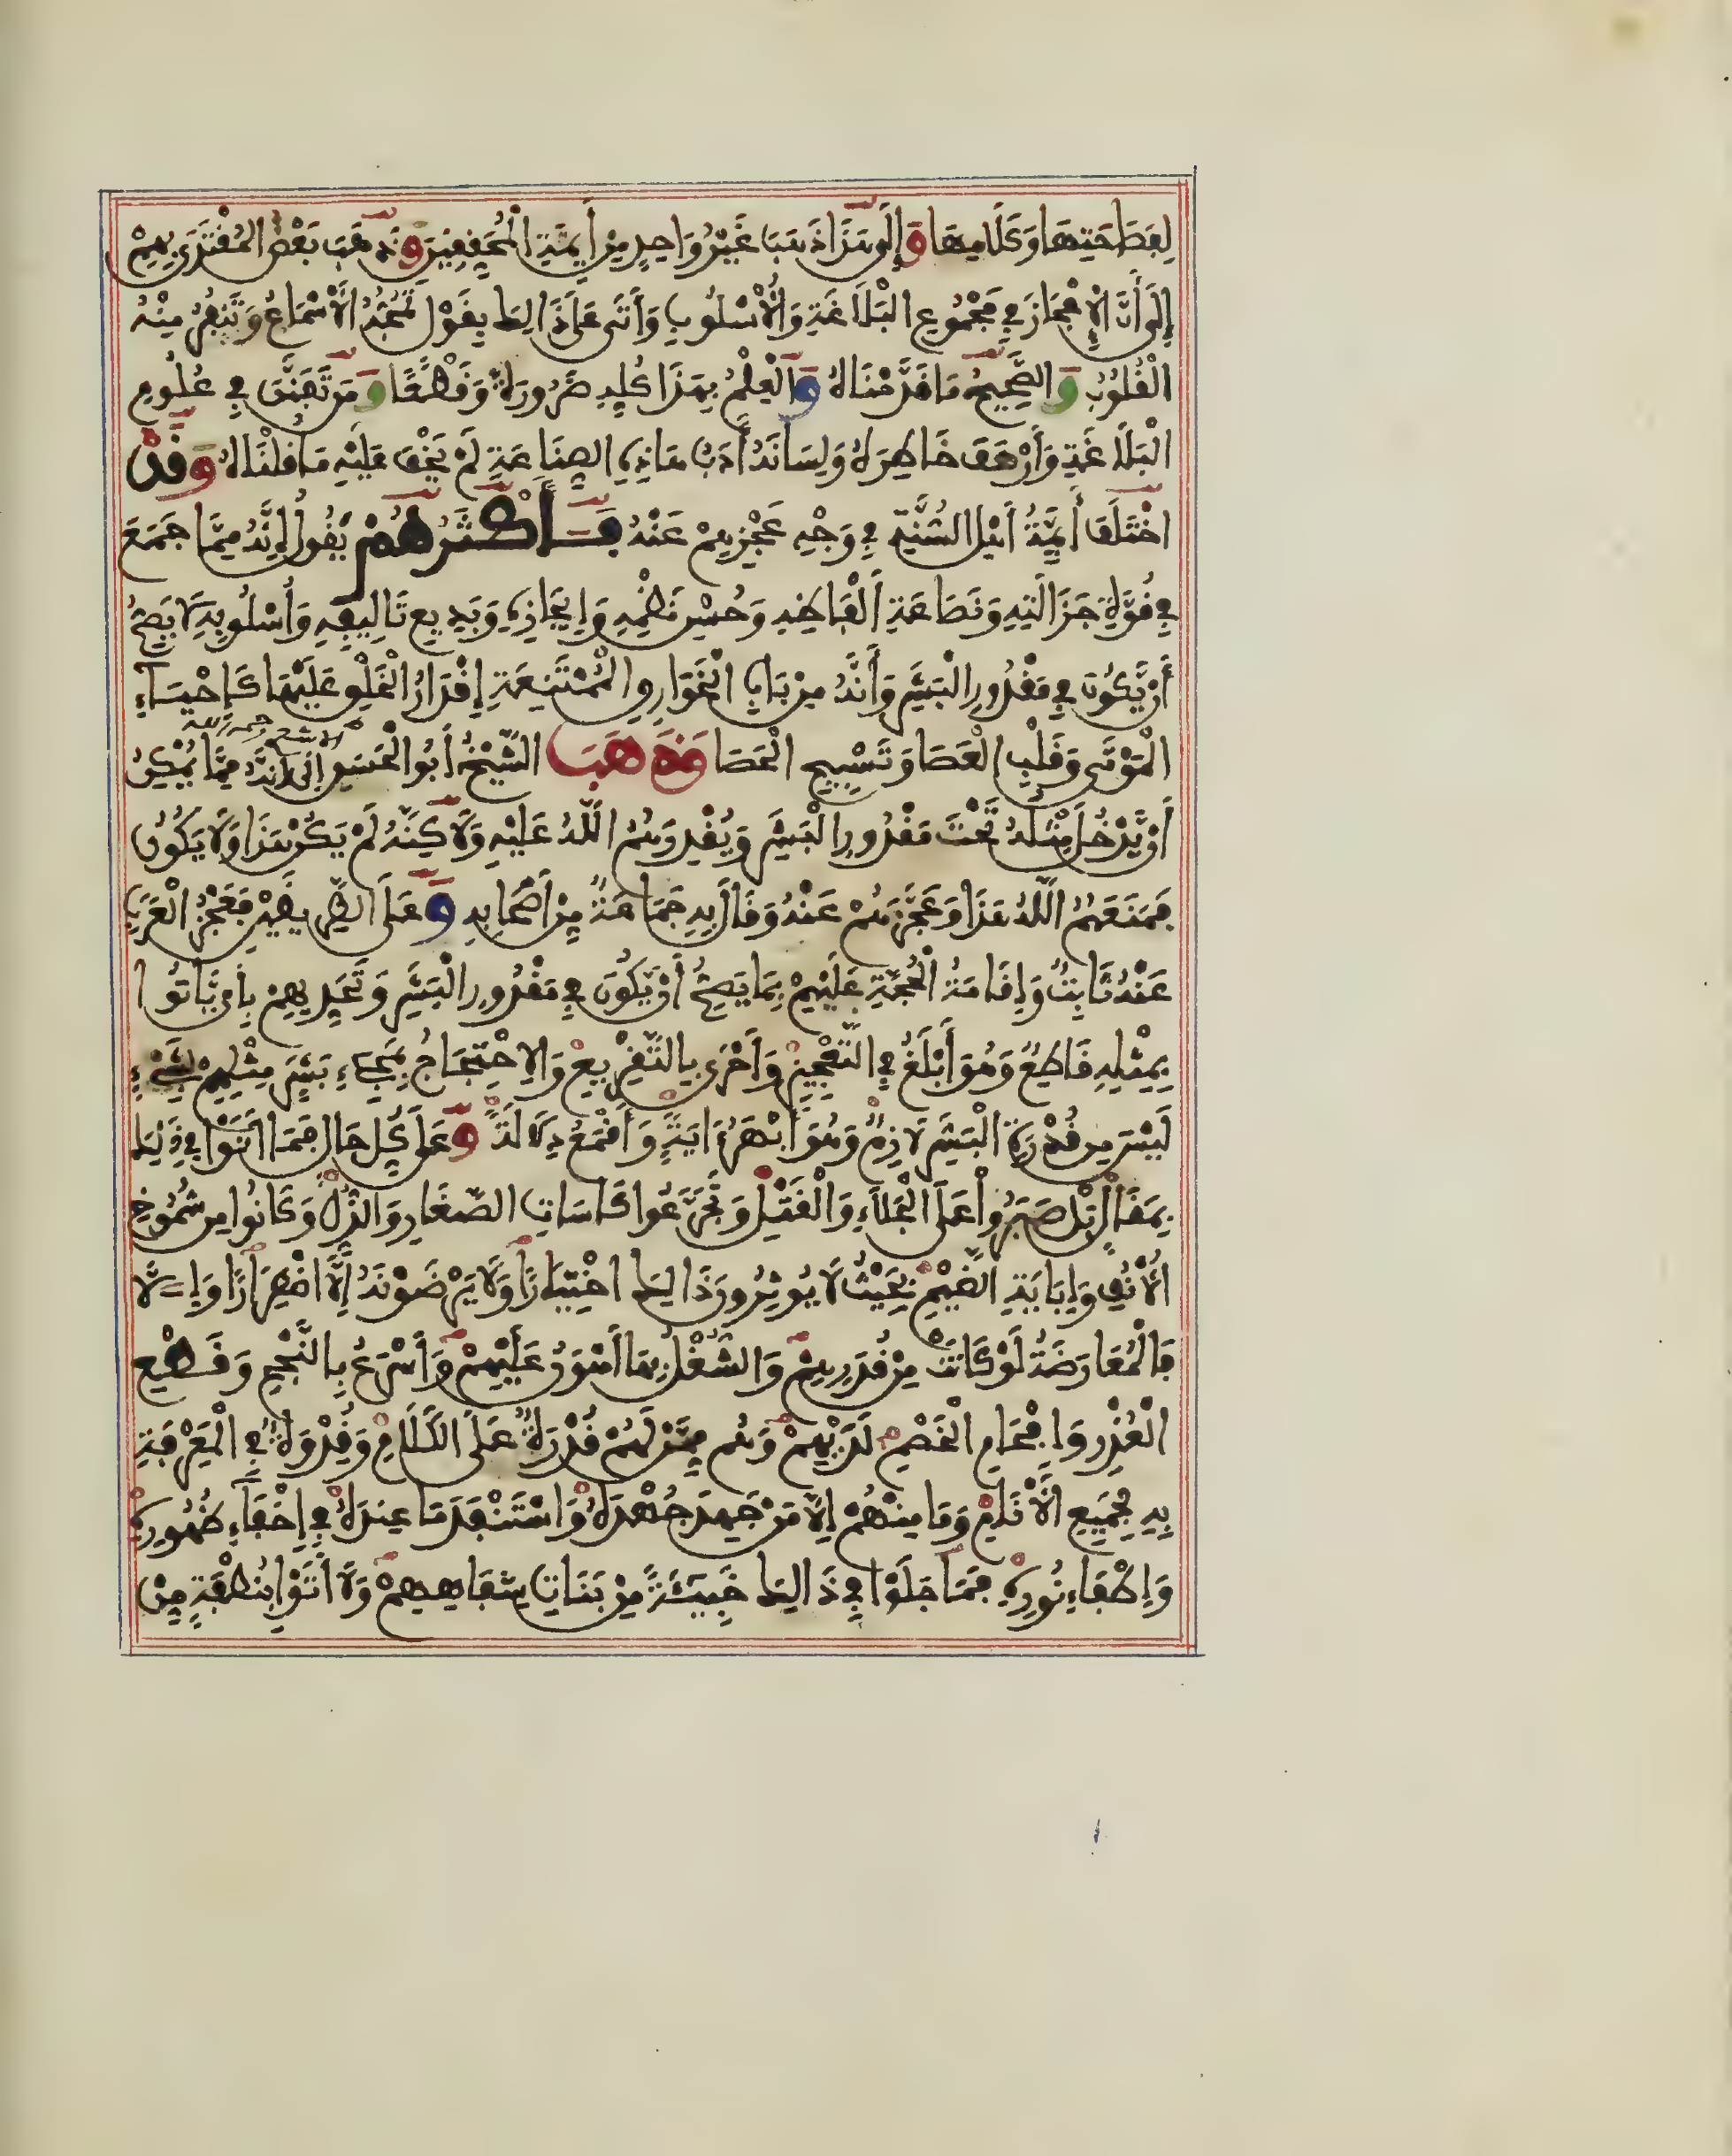 لِفَصَاحَتِهَا وَكَلَامِهَا وَإِلَى هَذَا ذَهَبَ غَيْرُ وَاحِدٍ مِنْ أَيِمَّةِ الْمُحَقِّقِينَ وَذَهَبَ بَعْضُ الْمُقْتَدَى بِهِمْ
إِلَى أَنَّ الْإِعْجَازَ فِي مَجْمُوعِ الْبَلَاغَةِ وَالْأُسْلُوبِ وَأَتَى عَلَى ذَالِكَ بِقَوْلٍ تَمُجُّهُ الْأَسْمَاعُ وَتَنْفِرُ مِنْهُ
الْقُلُوبُ وَالصَّحِيحُ مَا قَدَّمْنَاهُ وَالْعِلْمُ بِهَذَا كُلِّهِ ضَرُورَةً وَقَطْعًا وَمَنْ تَفَنَّنَ فِي عُلُومِ
الْبَلَاغَةِ وَأَرْهَفَ خَاطِرَهُ وَلِسَانَهُ أَدَبُ هَاذِهِ الصِّنَاعَةِ لَمْ يَخْفَ عَلَيْهِ مَا قُلْنَاهُ وَقَدْ
اخْتَلَفَ أَيِمَّةُ أَهْلِ السُّنَّةِ فِي وَجْهِ عَجْزِهِمْ عَنْهُ فَأَكْثَرُهُمْ يَقُولُ إِنَّهُ مِمَّا جَمَعَ
فِي قُوَّةِ جَزَالَتِهِ وَنَصَاعَةِ أَلْفَاظِهِ وَحُسْنِ نَظْمِهِ وَإِيجَازِهِ وَبَدِيعِ تَالِيفِهِ وَأُسْلُوبِهِ لَا يَصِحُّ
أَنْ يَّكُونَ فِي مَقْدُورِ الْبَشَرِ وَأَنَّهُ مِنْ بَابِ الْخَوَارِقِ الْمُمْتَنِعَةِ إِقْدَارُ الْخَلْقِ عَلَيْهَا كَإِحْيَاءِ
الْمَوْتَى وَقَلْبِ الْعَصَا وَتَسْبِيحِ الْحَصَا وَذَهَبَ الشَّيْخُ أَبُو الْحَسَنِ إِلَى أَنَّهُ مِمَّا يُمْكِنُ
أَنْ يَّدْخُلَ مِثْلُهُ تَحْتَ مَقْدُورِ الْبَشَرِ وَيُقْدِرُهُمُ اللَّهُ عَلَيْهِ وَلَاكِنَّهُ لَمْ يَكُنْ هَذَا وَلَا يَكُونُ
فَمَنَعَهُمُ اللَّهُ هَذَا وَعَجَّزَهُمْ عَنْهُ وَقَالَ بِهِ جَمَاعَةٌ مِنْ أَصْحَابِهِ وَعَلَى الطَّرِيقَيْنِ فَعَجْزُ الْعَرَبِ
عَنْهُ ثَابِتٌ وَإِقَامَةُ الْحُجَّةِ عَلَيْهِمْ بِمَا يَصِحُّ أَنْ يَّكُونَ فِي مَقْدُورِ الْبَشَرِ وَتَحَدِّيهِمْ بِأَنْ يَّاتُوا
بِمِثْلِهِ قَاطِعٌ وَهُوَ أَبْلَغُ فِي التَّعْجِيزِ وَأَحْرَى بِالتَّقْرِيعِ وَالِاحْتِجَاجُ بِمَجِيءِ بَشَرٍ مِثْلِهِمْ بِشَيْءٍ
لَيْسَ مِنْ قُدْرَةِ الْبَشَرِ لَازِمٌ وَهُوَ أَبْهَرُ ءَايَةٍ وَأَقْمَعُ دِلَالَةً وَعَلَى كُلِّ حَالٍ فَمَا أَتَوْا فِي ذَلِكَ
بِمَقَالٍ بَلْ صَبَرُوا عَلَى الْجَلَاءِ وَالْقَتْلِ وَتَجَرَّعُوا كَاسَاتِ الصَّغَارِ وَالذُّلِّ وَكَانُوا مِنْ شُمُوخِ
الْأَنْفِ وَإِبَايَةِ الضَّيْمِ بِحَيْثُ لَا يُوثِرُونَ ذَالِكَ اخْتِيَارًا وَلَا يَرْضَوْنَهُ إِلَّا اضْطِرَارًا وَإِلَّا
فَالْمُعَارَضَةُ لَوْ كَانَتْ مِنْ قُدَرِهِمْ وَالشُّغْلُ بِهَا أَهْوَنُ عَلَيْهِمْ وَأَسْرَعُ بِالنُّجْحِ وَقَطْعِ
الْعُذْرِ وَإِفْحَامِ الْخَصْمِ لَدَيْهِمْ وَهُم مِمَّنْ لَهُمْ قُدْرَةٌ عَلَى الْكَلَامِ وَقُدْوَةٌ فِي الْمَعْرِفَةِ
بِهِ لِجَمِيعِ الْأَنَامِ وَمَا مِنْهُمْ إِلَّا مَنْ جَهَدَ جُهْدَهُ وَاسْتَنْفَدَ مَا عِنْدَهُ فِي إِخْفَاءِ ظُهُورِهِ
وَإِطْفَاءِ نُورِهِ فَمَا جَلَوْا فِي ذَالِكَ خَبِيئَةً مِنْ بَنَاتِ شِفَاهِهِمْ وَلَا أَتَوْا بِنُطْفَةٍ مِنْ